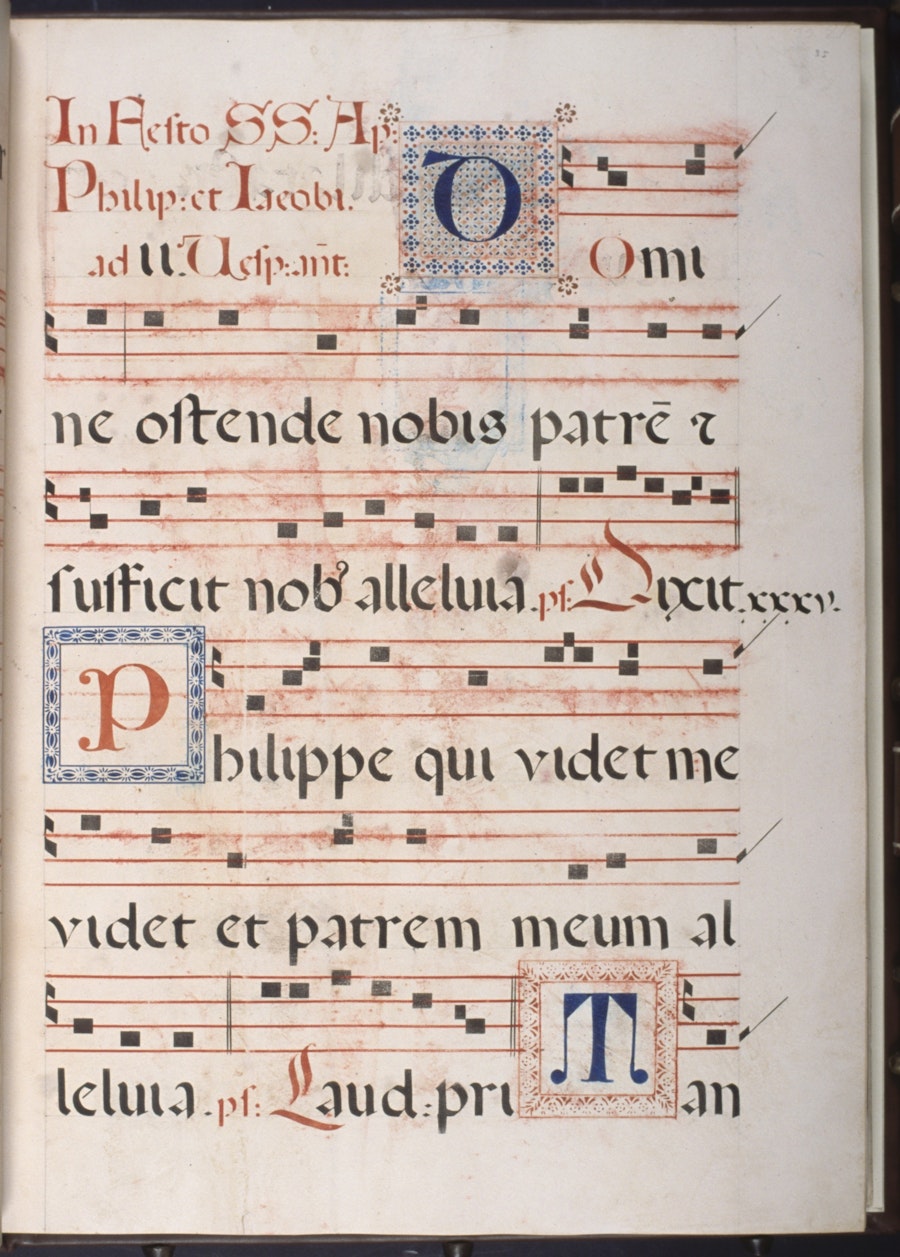 35
In Festo SS: Ap:
Philip: et Iacobi.
ad II. Vesp: an̄t:
D Omi
ne ostende nobis patrē ⁊
sufficit nob᾽ alleluia. ps: Dixit. xxxv.
Philippe qui videt me
videt et patrem meum al
leluia. ps: Laud: pri Tan